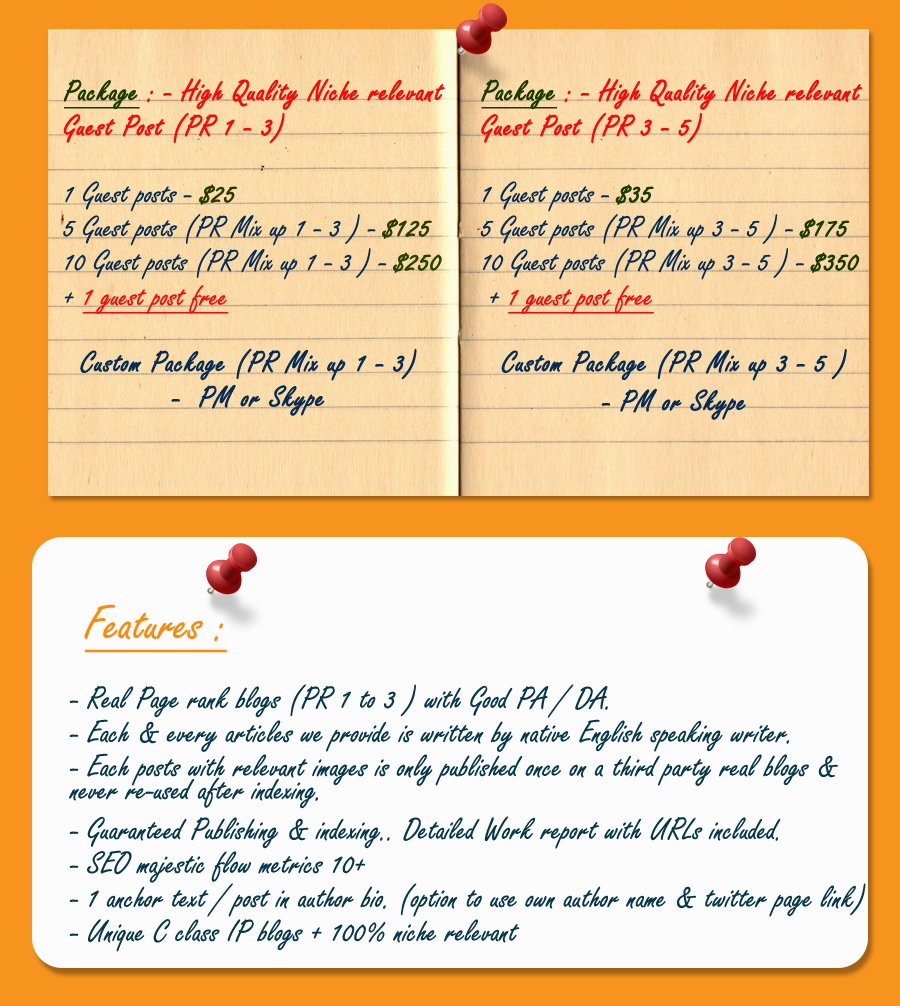 Package : - High Quality Niche relevant
Guest Post (PR 1 - 3)
1 Guest posts - $25
5 Guest posts (PR Mix up 1 - 3 ) - $125
10 Guest posts (PR Mix up 1 - 3 ) - $250
+ 1 guest post free
Custom Package (PR Mix up 1 - 3)
- PM or Skype
Package : - High Quality Niche relevant
Guest Post (PR 3 - 5)
1 Guest posts - $35
5 Guest posts (PR Mix up 3 - 5 ) - $175
10 Guest posts (PR Mix up 3 - 5 ) - $350
+ 1 guest post free
Custom Package (PR Mix up 3 - 5 )
- PM or Skype
Features :
- Real Page rank blogs (PR 1 to 3 ) with Good PA / DA.
- Each & every articles we provide is written by native English speaking writer.
- Each posts with relevant images is only published once on a third party real blogs &
never re-used after indexing.
- Guaranteed Publishing & indexing.. Detailed Work report with URLs included.
- SEO majestic flow metrics 10+
- 1 anchor text / post in author bio. (option to use own author name & twitter page link)
- Unique C class IP blogs + 100% niche relevant